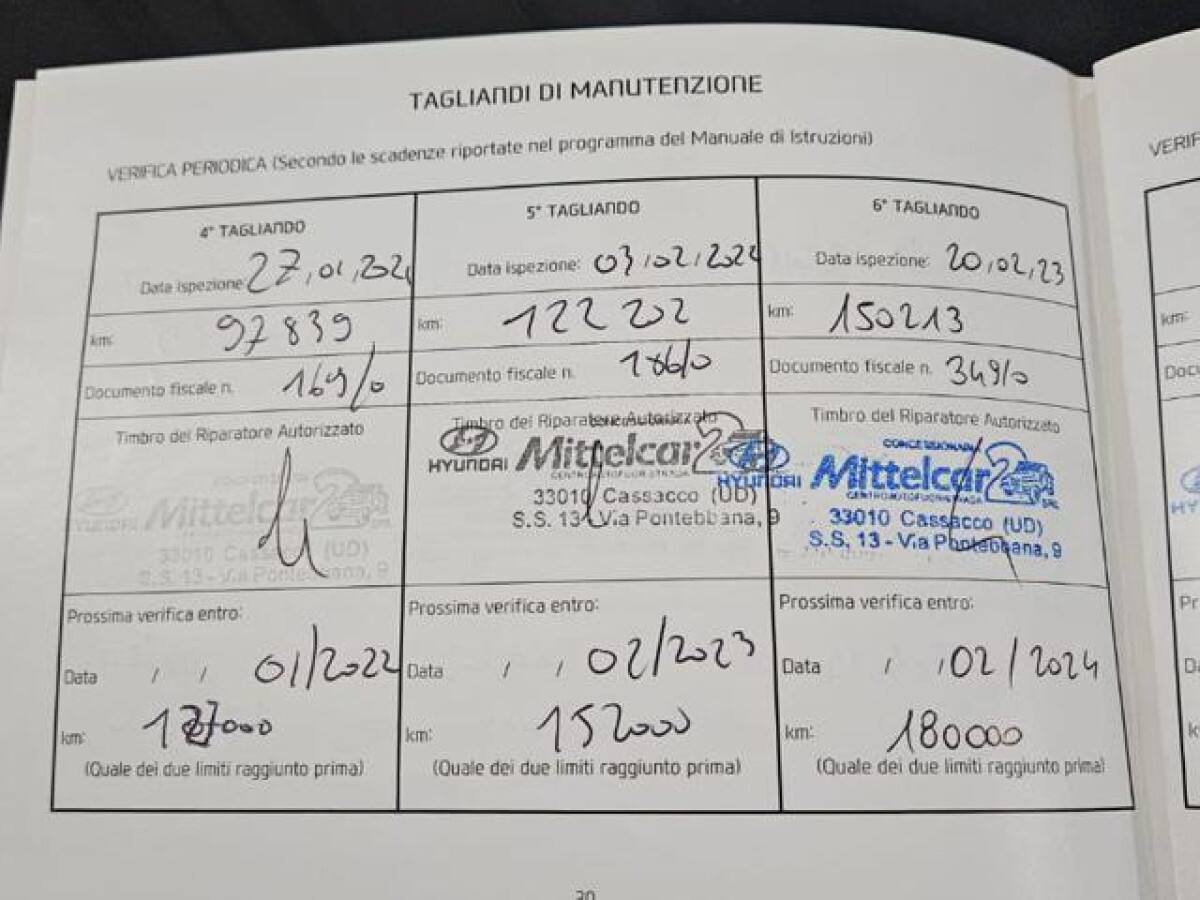 TAGLIANDI DI MANUTENZIONE
VERIFICA PERIODICA (Secondo le scadenze riportate nel programma del Manuale di Istruzioni)
VERIF
4° TAGLIANDO
Data ispezione: 27,01,202
km: 97839
Documento fiscale n. 169/0
Timbro del Riparatore Autorizzato
HYUNDAI Mittelcar 2
33010 Cassacco (UD)
S.S. 13 - Via Pontebbana, 9
Prossima verifica entro:
Data / / 01/2022
km: 127000
(Quale dei due limiti raggiunto prima)
5° TAGLIANDO
Data ispezione: 03,02,202
km: 122202
Documento fiscale n. 186/0
Timbro del Riparatore Autorizzato
HYUNDAI Mittelcar 2
33010 Cassacco (UD)
S.S. 13 - Via Pontebbana, 9
Prossima verifica entro:
Data / / 02/2023
km: 152000
(Quale dei due limiti raggiunto prima)
6° TAGLIANDO
Data ispezione: 20,02,23
km: 150213
Documento fiscale n. 349/0
Timbro del Riparatore Autorizzato
CONCESSIONARIA
HYUNDAI Mittelcar 2
33010 Cassacco (UD)
S.S. 13 - Via Pontebbana, 9
Prossima verifica entro:
Data / / 02/2024
km: 180000
(Quale dei due limiti raggiunto prima)
km:
Docu
HY
Pr
20